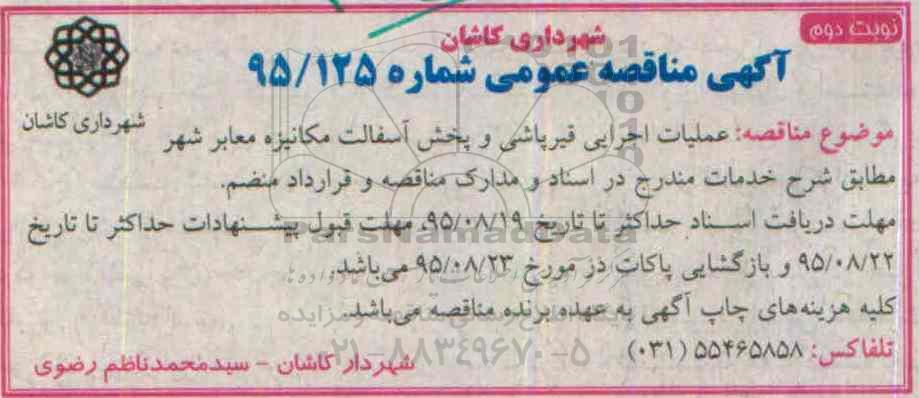 نوبت دوم
شهرداری کاشان
آگهی مناقصه عمومی شماره ۹۵/۱۲۵
شهرداری کاشان
موضوع مناقصه: عملیات اجرایی قیرپاشی و پخش آسفالت مکانیزه معابر شهر
مطابق شرح خدمات مندرج در اسناد و مدارک مناقصه و قرارداد منضم.
مهلت دریافت اسناد حداکثر تا تاریخ ۹۵/۰۸/۱۹، مهلت قبول پیشنهادات حداکثر تا تاریخ
۹۵/۰۸/۲۲ و بازگشایی پاکات در مورخ ۹۵/۰۸/۲۳ می‌باشد.
کلیه هزینه‌های چاپ آگهی به عهده برنده مناقصه می‌باشد.
تلفاکس: ۵۵۴۶۵۸۵۸ (۰۳۱)
شهردار کاشان – سیدمحمدناظم رضوی
ParsNamadData
۰۲۱-۸۸۳۴۹۶۷۰-۵